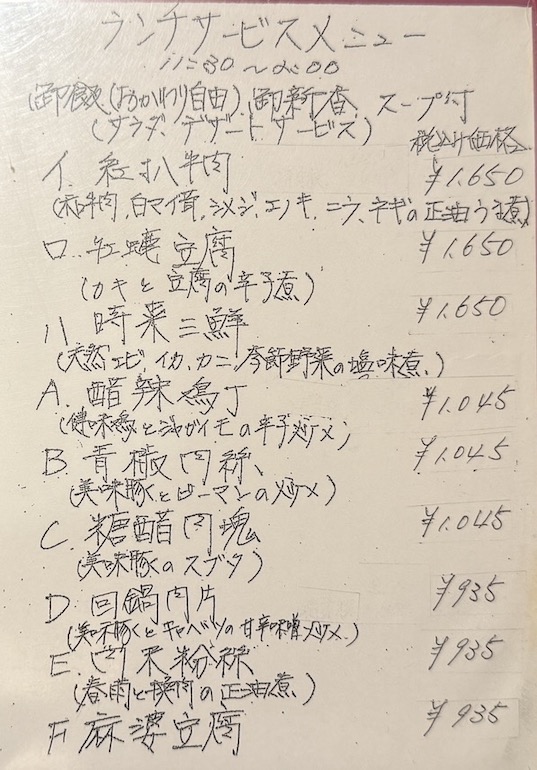 ランチサービスメニュー
11:30〜2:00
御飯(おかわり自由)、御新香、スープ付
(サラダ、デザートサービス)
税込け価格
イ. 紅扒牛肉 ¥1.650
(和牛肉、白マイ茸、シメジ、エノキ、ニラ、ネギの正油うま煮)
ロ. 牡蠣豆腐 ¥1.650
(カキと豆腐の辛子煮)
ハ. 時菜三鮮 ¥1.650
(天然エビ、イカ、カニ、季節野菜の塩味煮、)
A. 醋辣鶏丁 ¥1.045
(健味鶏とジャガイモの辛子炒メ)
B. 青椒肉絲 ¥1.045
(美味豚とピーマンの炒メ)
C. 糖醋肉塊 ¥1.045
(美味豚のスブタ)
D. 回鍋肉片 ¥935
(美味豚とキャベツの甘辛味噌炒メ、)
E. 肉末粉絲 ¥935
(春雨と挽肉の正油煮、)
F. 麻婆豆腐 ¥935